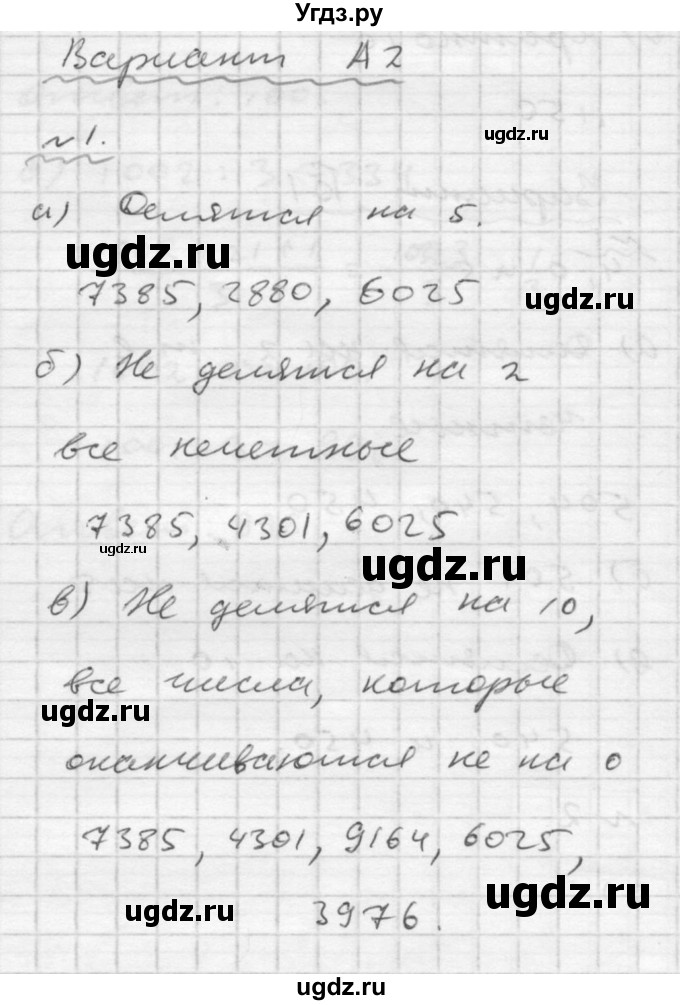 Угдз.ру
Вариант А2
ugdz.ru
№1.
а) Делятся на 5.
ugdz.ru
7385, 2880, 6025
ugdz.ru
б) Не делятся на 2
все нечетные
7385, 4301, 6025
ugdz.ru
ugdz.ru
в) Не делятся на 10,
все числа, которые
ugdz.ru
оканчиваются не на 0
7385, 4301, 9164, 6025,
ugdz.ru
3976.
ugdz.ru
ugdz.ru